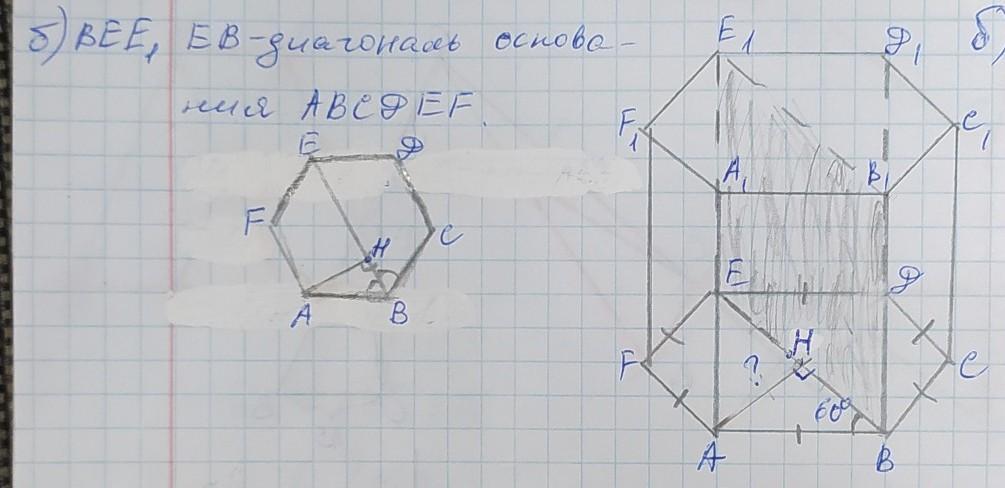 б) BEE₁, EB-диагональ основа-
ния ABCDEF.
E D
F H C
A B
E₁ D₁ б)
F₁ C₁
A₁ B₁
E D
F ? H C
60°
A B